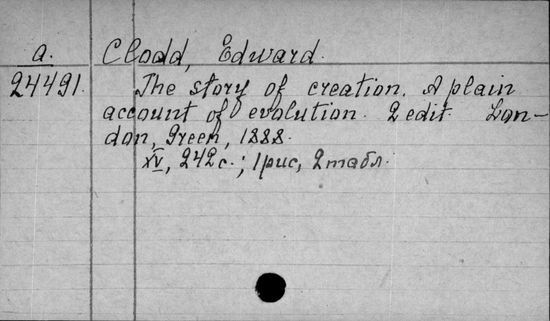 a. Clodd, Edward.
24491. The story of creation. A plain
account of evolution. 2 edit. Lon-
don, Green, 1888.
XV, 242 с.; 1 рис, 2 табл.